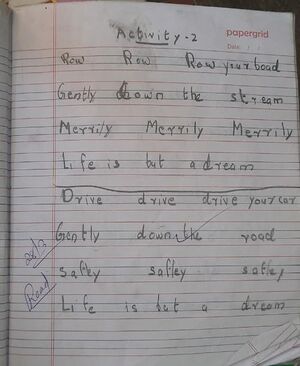 Activity-2
papergrid
Date: / /
Row Row Row your boad
Gently down the stream
Merrily Merrily Merrily
Life is but a dream
Drive drive drive your car
Gently down the road
Safley safley safley
Life is but a dream
Read